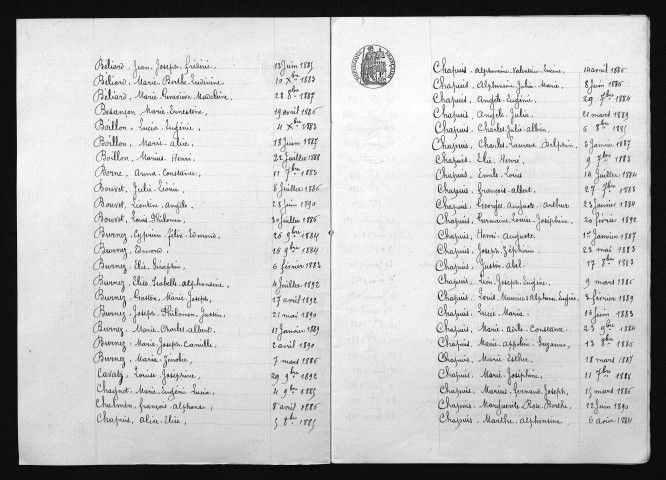 Béliard, Jean Joseph Frédéric 13 Juin 1885
Béliard, Marie Berthe Ludivine 10 Xbre 1883
Béliard, Marie Geneviève Madeleine, 28 8bre 1887
Besançon Marie Ernestine, 19 avril 1886
Boillon, Lucia Eugénie, 4 Xbre 1883
Boillon, Marie Alice, 18 Juin 1887
Boillon, Marius Henri, 22 Juillet 1888
Borne, Anna Constance, 11 7bre 1883
Bouvet, Julie 8 Juillet 1886
Bouvet, Léontine Angèle, 28 Juin 1890
Bouvet, Louis Philomen, 30 Juillet 1886
Burnez, Cyprien Félix Edmond, 26 9bre 1884
Burnez, Edmond, 16 9bre 1884
Burnez, Elie Séraphin, 6 février 1883
Burnez, Elise Isabelle Alphonsine, 4 Juillet 1892
Burnez, Gaston Marie Joseph, 17 avril 1892
Burnez, Joseph Philomen Justin, 21 mai 1890
Burnez, Marie Charles Albert, 11 Janvier 1889
Burnez, Marie Joseph Camille, 2 avril 1890
Burnez, Maria Zénobie, 7 mars 1886
Cavatz, Louise Joséphine, 29 9bre 1892
Chagnot, Marie Eugénie Lucia, 4 9bre 1885
Chalmin, François Alphonse, 8 avril 1886
Chapuis, Alice Elise, 5 8bre 1885
Chapuis, Alphonsine Valentine 14 avril 1886
Chapuis, Alphonsine Julia Marie, 8 Juin 1886
Chapuis, Angèle Eugénie, 29 7bre 1884
Chapuis, Angèle Julia, 21 mars 1889
Chapuis, Charles Jules Albin, 6 8bre 1885
Chapuis, Charles Laurent Delphin, 8 Janvier 1887
Chapuis, Elie Henri, 9 7bre 1883
Chapuis, Emile Louis 14 Juillet 1884
Chapuis, François Albert, 27 7bre 1883
Chapuis, Georges Auguste Arthur 23 Janvier 1884
Chapuis, Germaine Louise Joséphine, 20 février 1892
Chapuis, Henri Auguste 1er Janvier 1887
Chapuis, Joseph Zéphirin 23 mai 1883
Chapuis, Justin Abel 17 8bre 1883
Chapuis, Léon Joseph Eugène, 9 mars 1886
Chapuis, Louis Maurice Alphonse Eugène, 3 février 1889
Chapuis, Lucie Maria 16 Juin 1883
Chapuis, Marie Constance 23 9bre 1884
Chapuis, Marie Appoline Suzanne, 13 8bre 1886
Chapuis, Marie Esther 18 mars 1887
Chapuis, Marie Joséphine, 11 7bre 1888
Chapuis, Marius Fernand Joseph, 15 mars 1886
Chapuis, Marguerite Rose Berthe, 22 Juin 1890
Chapuis, Marthe Alphonsine 6 août 1884